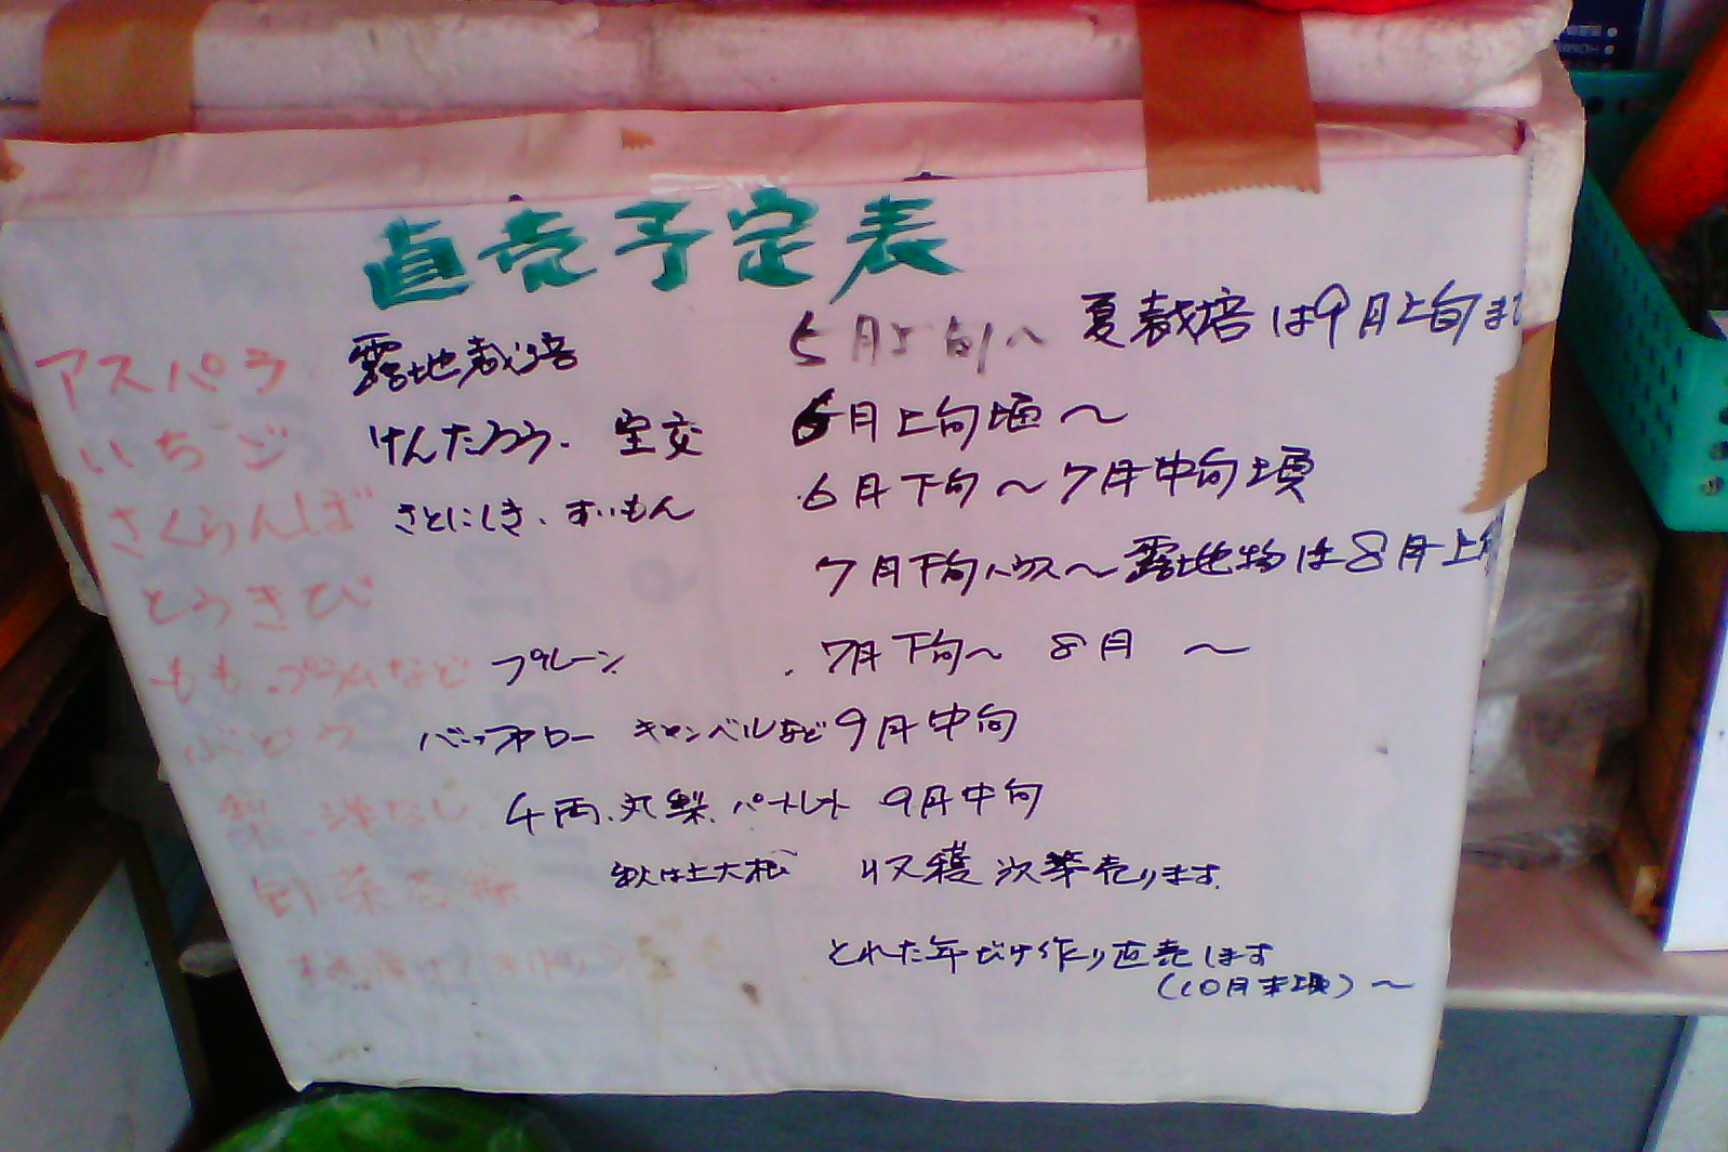 直売予定表
アスパラ 露地栽培 5月上旬〜 夏栽培は9月上旬まで
いちご けんたろう、宝交 6月上旬頃〜
さくらんぼ さとにしき、すいもん 6月下旬〜7月中旬頃
とうきび 7月下旬ハウス〜露地物は8月上旬
もも、プラムなど プルーン 7月下旬〜 8月 〜
ぶどう バッファロー キャンベルなど 9月中旬
梨、洋なし 千両、身不知、バートレット 9月中旬
野菜各種 秋は土大根 収穫次第売ります。
とれた年だけ作り直売します
(10月末頃)〜